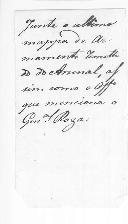 Junte o ultimo
mappa do Ar-
mamento remetti-
do do Arsenal, as-
sim como o off.º
que menciona o
Gen.al Roza.